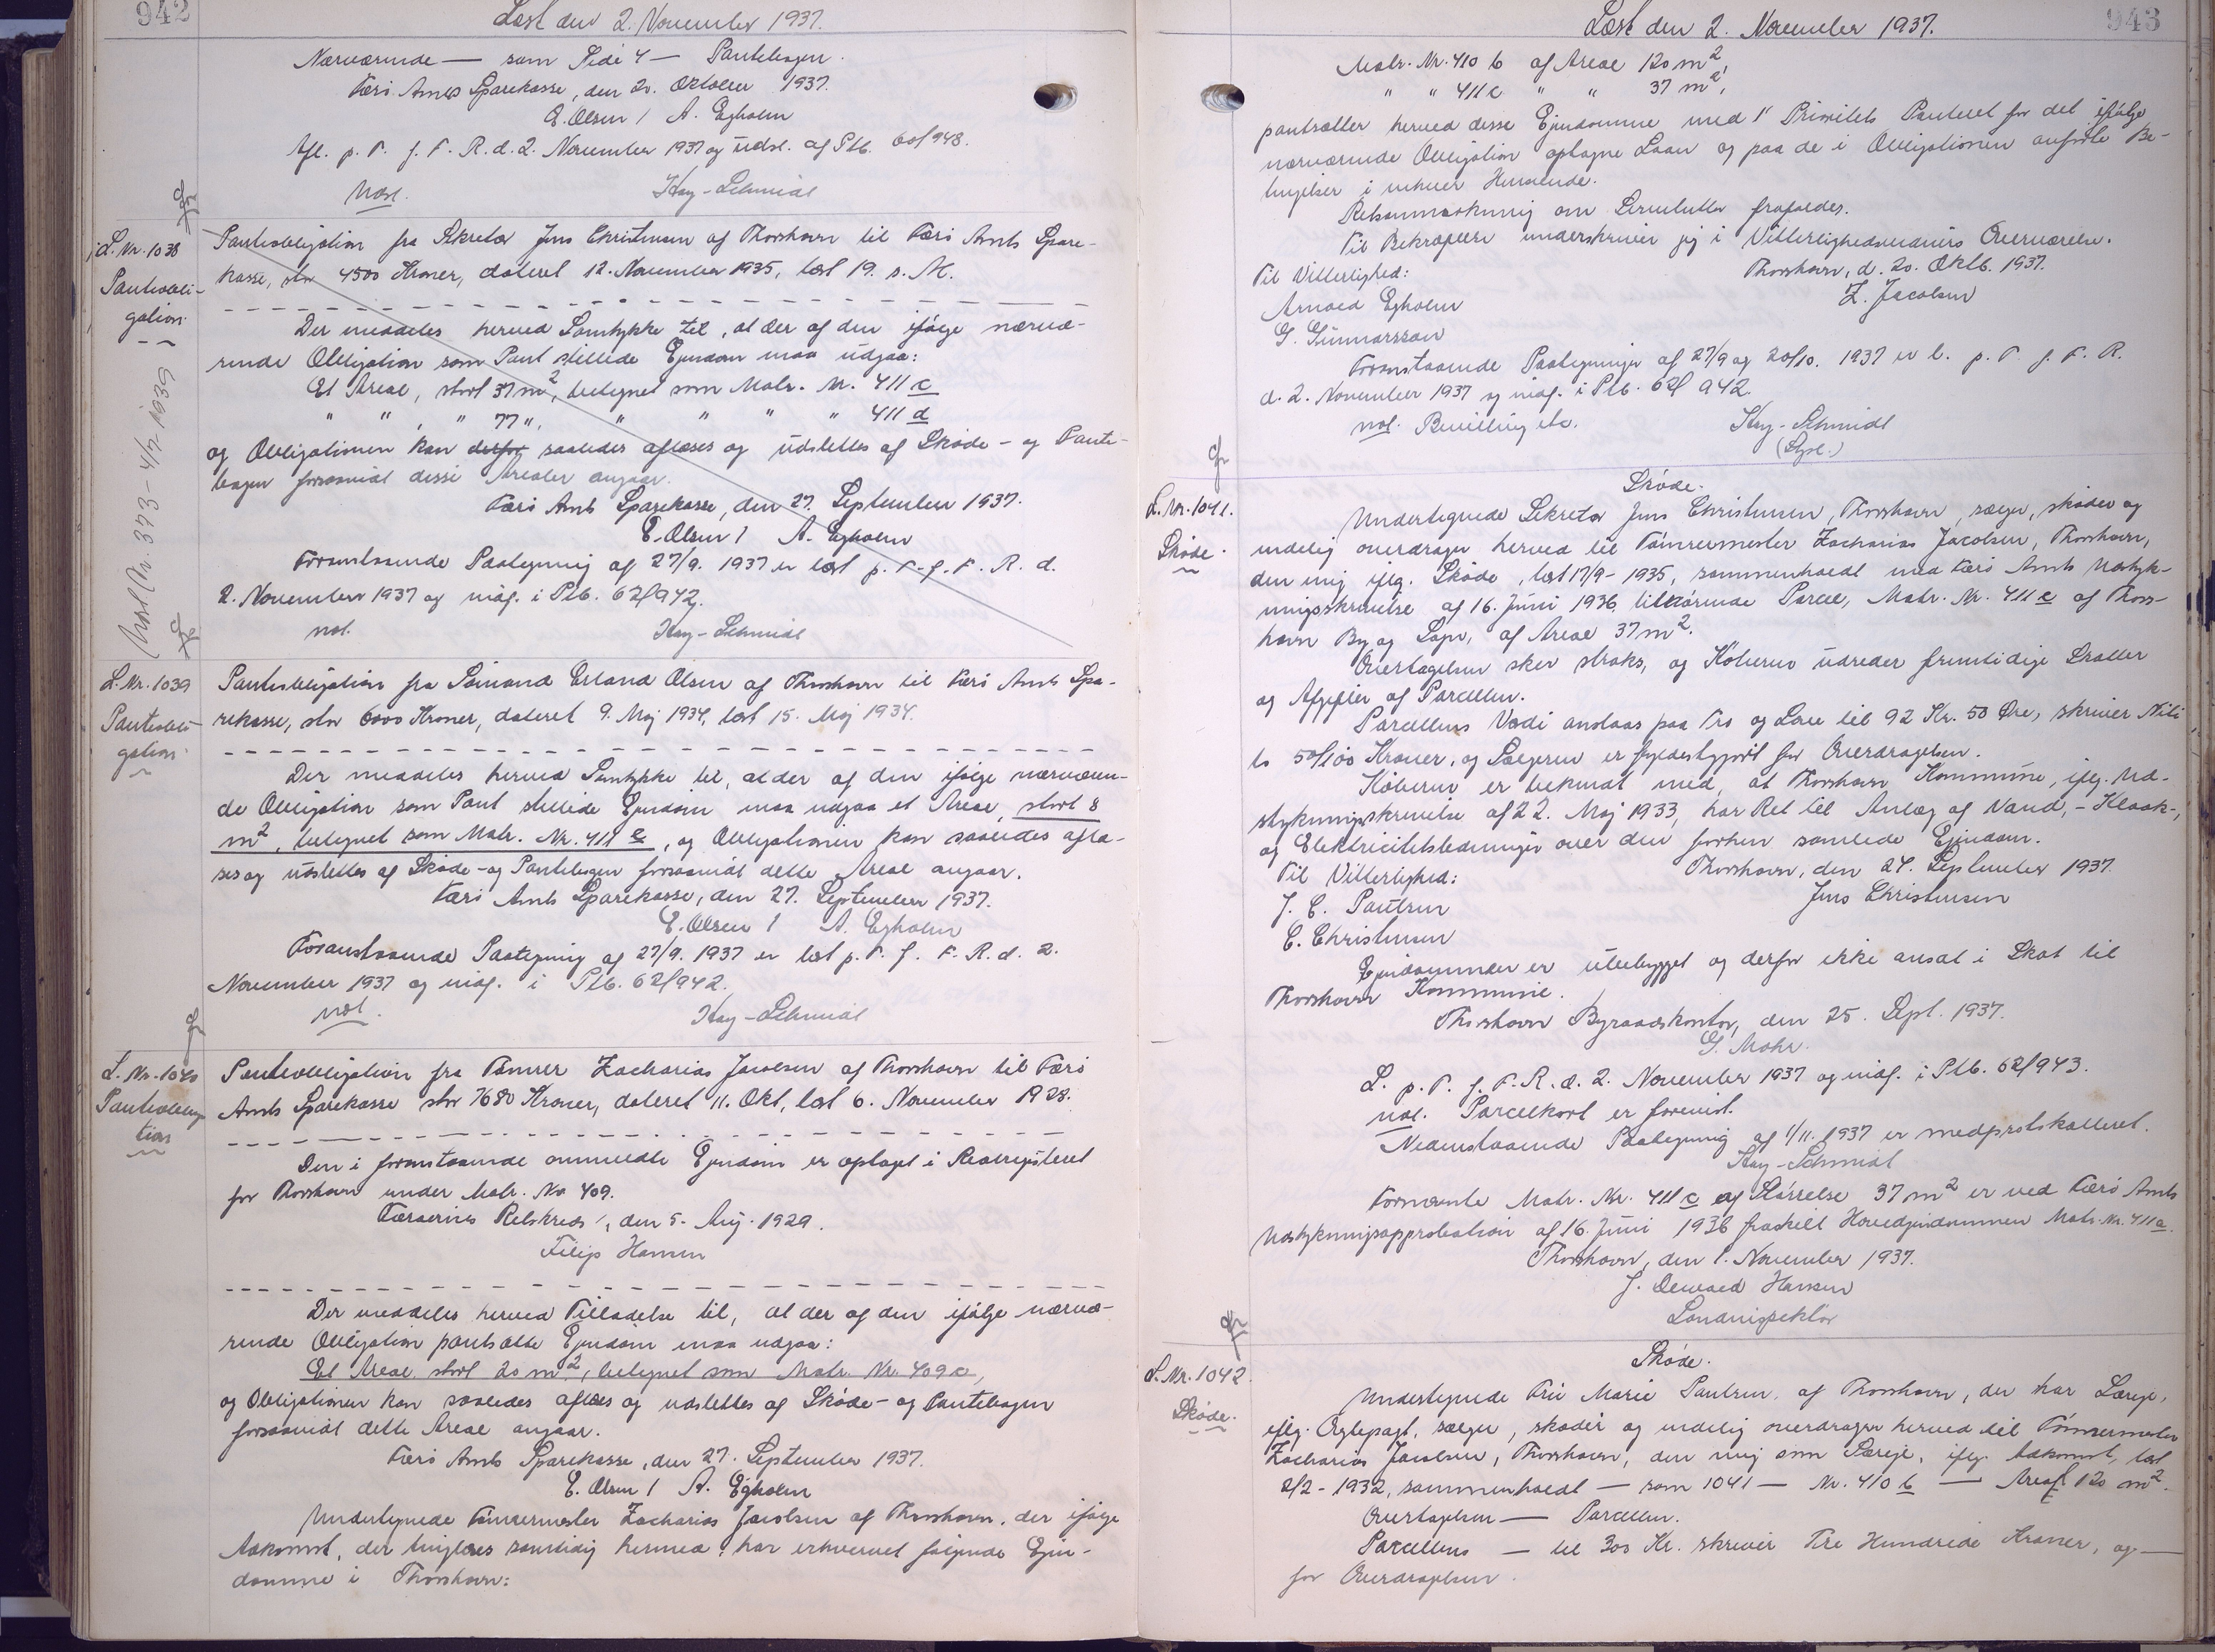 942
Læst den 2. November 1937.
Nærværende — som Side 4 — Pantebogen.
Færø Amts Sparekasse, den 20. Oktober 1937.
E. Olsen / A. Egholm
Afl. p. T. f. F. R. d. 2. November 1937 og udsl. af Ptb. 60/948.
Kay-Schmidt
L. Nr. 1038
Pantobli-
gation
Panteobligation fra Sekretær Jens Christensen af Thorshavn til Færø Amts Spare-
kasse, stor 4500 Kroner, dateret 12. November 1935, læst 19. s. M.
Der meddeles herved Samtykke til, at der af den ifølge nærvæ-
rende Obligation som Pant stillede Ejendom maa udgaa:
Et Areal, stort 37 m², betegnet som Matr. Nr. 411 c
" " , " 77 ", " " " " 411 d
og Obligationen kan derfor saaledes aflæses og udslettes af Skøde- og Pante-
bogen forsaavidt disse Arealer angaar.
Færø Amts Sparekasse, den 27. September 1937.
E. Olsen / A. Egholm
Foranstaaende Paategning af 27/9. 1937 er læst p. T. f. F. R. d.
2. November 1937 og indf. i Ptb. 62/942.
Kay-Schmidt
L. Nr. 373 - 4/7 1939
L. Nr. 1039
Panteobli-
gation
Panteobligation fra Sømand Erland Olsen af Thorshavn til Færø Amts Spa-
rekasse, stor 6000 Kroner, dateret 9. Maj 1934, læst 15. Maj 1934.
Der meddeles herved Samtykke til, at der af den ifølge nærværen-
de Obligation som Pant stillede Ejendom maa udgaa et Areal, stort 8
m², betegnet som Matr. Nr. 411 e, og Obligationen kan saaledes aflæ-
ses og udslettes af Skøde- og Pantebogen forsaavidt dette Areal angaar.
Færø Amts Sparekasse, den 27. September 1937.
E. Olsen / A. Egholm
Foranstaaende Paategning af 27/9. 1937 er læst p. T. f. F. R. d. 2.
November 1937 og indf. i Ptb. 62/942.
Kay-Schmidt
L. Nr. 1040
Panteobliga
tion
Panteobligation fra Tømrer Zacharias Jacobsen af Thorshavn til Færø
Amts Sparekasse stor 7680 Kroner, dateret 11. Okt, læst 6. November 1928.
Den i foranstaaende ommeldte Ejendom er optaget i Realregisteret
for Thorshavn under Matr. No 409.
Færøernes Retskreds, den 5. Aug. 1929.
Filip Hansen
Der meddeles herved Tilladelse til, at der af den ifølge nærvæ-
rende Obligation pantsatte Ejendom maa udgaa:
Et Areal stort 20 m², betegnet som Matr. Nr. 409 c,
og Obligationen kan saaledes aflæses og udslettes af Skøde- og Pantebogen
forsaavidt dette Areal angaar.
Færø Amts Sparekasse, den 27. September 1937.
E. Olsen / A. Egholm
Undertegnede Tømrermester Zacharias Jacobsen af Thorshavn, der ifølge
Adkomst, der tinglæses samtidig hermed, har erhvervet følgende Ejen-
domme i Thorshavn:
943
Læst den 2. November 1937.
Matr. Nr. 410 b af Areal 120 m²,
" " 411 c " " 37 m²,
pantsætter herved disse Ejendomme med 1' Prioritets Panteret for det ifølge
nærværende Obligation optagne Laan og paa de i Obligationen anførte Be-
tingelser i enhver Henseende.
Retsanmærkning om Servitutter frafaldes.
Til Bekræftelse underskriver jeg i Vitterlighedsvidners Overværelse.
Til Vitterlighed:
Thorshavn, d. 20. Oktb. 1937.
Arnold Egholm
Z. Jacobsen
G. Gunnarsson
Foranstaaende Paategninger af 27/9 og 20/10. 1937 er l. p. T. f. F. R.
d. 2. November 1937 og indf. i Ptb. 62/942.
Bevilling
Kay-Schmidt
L. Nr. 1041.
Skøde.
Skøde.
Undertegnede Sekretær Jens Christensen, Thorshavn, sælger, skøder og
endelig overdrager herved til Tømrermester Zacharias Jacobsen, Thorshavn,
den mig iflg. Skøde, læst 17/9 - 1935, sammenholdt med Færø Amts Udstyk-
ningsskrivelse af 16. Juni 1936, tilhørende Parcel, Matr. Nr. 411 c af Thors-
havn By og Sogn, af Areal 37 m².
Overtagelsen sker straks, og Køberen udreder fremtidige Skatter
og Afgifter af Parcellen.
Parcellens Værdi anslaas paa Tro og Love til 92 Kr. 50 Øre, skriver Niti
to 50/100 Kroner, og Sælgeren er fyldestgjort for Overdragelsen.
Køberen er bekendt med, at Thorshavn Kommune, iflg. Ud-
stykningsskrivelse af 22. Maj 1933, har Ret til Anlæg af Vand-, Kloak-,
og Elektricitetsledninger over den forhen samlede Ejendom.
Til Vitterlighed:
Thorshavn, den 24. September 1937.
J. C. Poulsen
Jens Christensen
C. Christensen
Ejendommen er ubebygget og derfor ikke ansat i Skat til
Thorshavn Kommune.
Thorshavn Byraadskontor, den 25. Sept. 1937.
G. Mohr.
L. p. T. f. F. R. d. 2. November 1937 og indf. i Ptb. 62/943.
Parcelkort er forevist.
Nedenstaaende Paategning af 1/11. 1937 er medprotokolleret.
Kay-Schmidt
Fornævnte Matr. Nr. 411 c af Størrelse 37 m² er ved Færø Amts
Udstykningsapprobation af 16. Juni 1936 fraskilt Hovedejendommen Matr. Nr. 411 a.
Thorshavn, den 1. November 1937.
J. Dewald Hansen
Landinspektør
L. Nr. 1042.
Skøde.
Skøde.
Undertegnede Fru Marie Poulsen, af Thorshavn, der har Særeje,
iflg. Ægtepagt, sælger, skøder og endelig overdrager herved til Tømrermester
Zacharias Jacobsen, Thorshavn, den mig som Særeje, iflg. Adkomst, læst
2/2 - 1932, sammenholdt — som 1041 — Nr. 410 b — Areal 120 m².
Overtagelsen — Parcellen.
Parcellens — til 300 Kr. skriver Tre Hundrede Kroner, og —
for Overdragelsen.